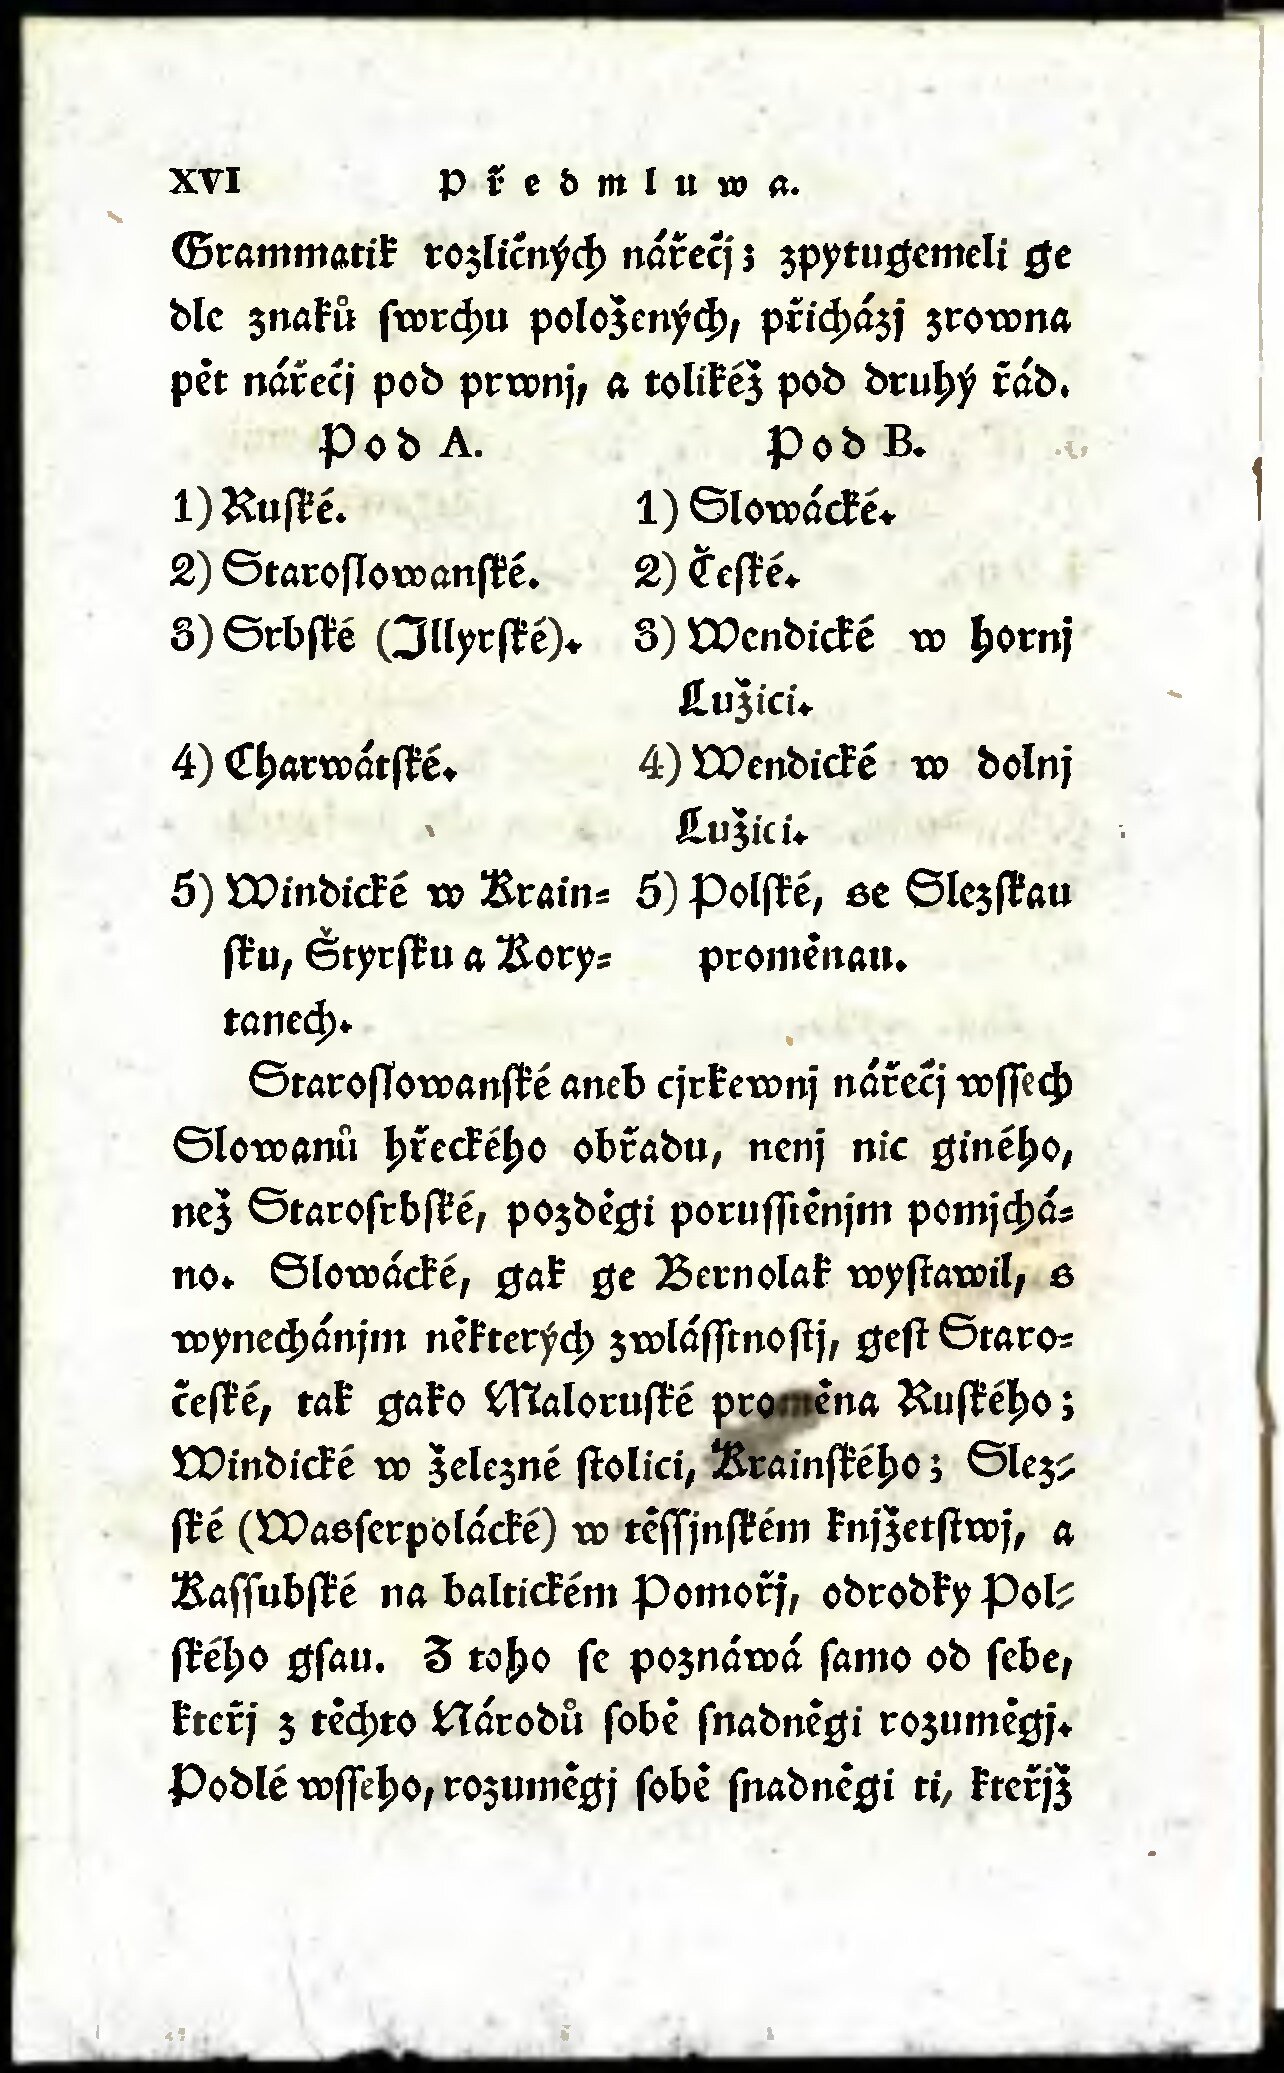 XVI Předmluwa.
Grammatik rozličných nářečj; zpytugemeli ge
dle znaků ſwrchu položených, přicházj zrowna
pět nářečj pod prwnj, a tolikéž pod druhý řád.
Pod A. Pod B.
1) Ruſké. 1) Slowácké.
2) Staroſlowanſké. 2) Čeſké.
3) Srbſké (Illyrſké). 3) Wendické w hornj
Lužici.
4) Charwátſké. 4) Wendické w dolnj
Lužici.
5) Windické w Krain= 5) Polſké, se Slezſkau
ſku, Štyrſku a Kory= proměnau.
tanech.
Staroſlowanſké aneb cjrkewnj nářečj wſſech
Slowanů hřeckého obřadu, nenj nic giného,
než Staroſrbſké, pozděgi poruſſtěnjm pomjchá=
no. Slowácké, gak ge Bernolak wyſtawil, s
wynechánjm některých zwláſſtnoſtj, geſt Staro=
čeſké, tak gako Maloruſké proměna Ruſkého;
Windické w železné ſtolici, Krainſkého; Slez=
ſké (Wasſerpolácké) w těſſjnſkém knjžetſtwj, a
Kaſſubſké na baltickém Pomořj, odrodky Pol=
ſkého gſau. Z toho ſe poznáwá ſamo od ſebe,
kteřj z těchto Národů ſobě ſnadněgi rozuměgj.
Podlé wſſeho, rozuměgj ſobě ſnadněgi ti, kteřjž